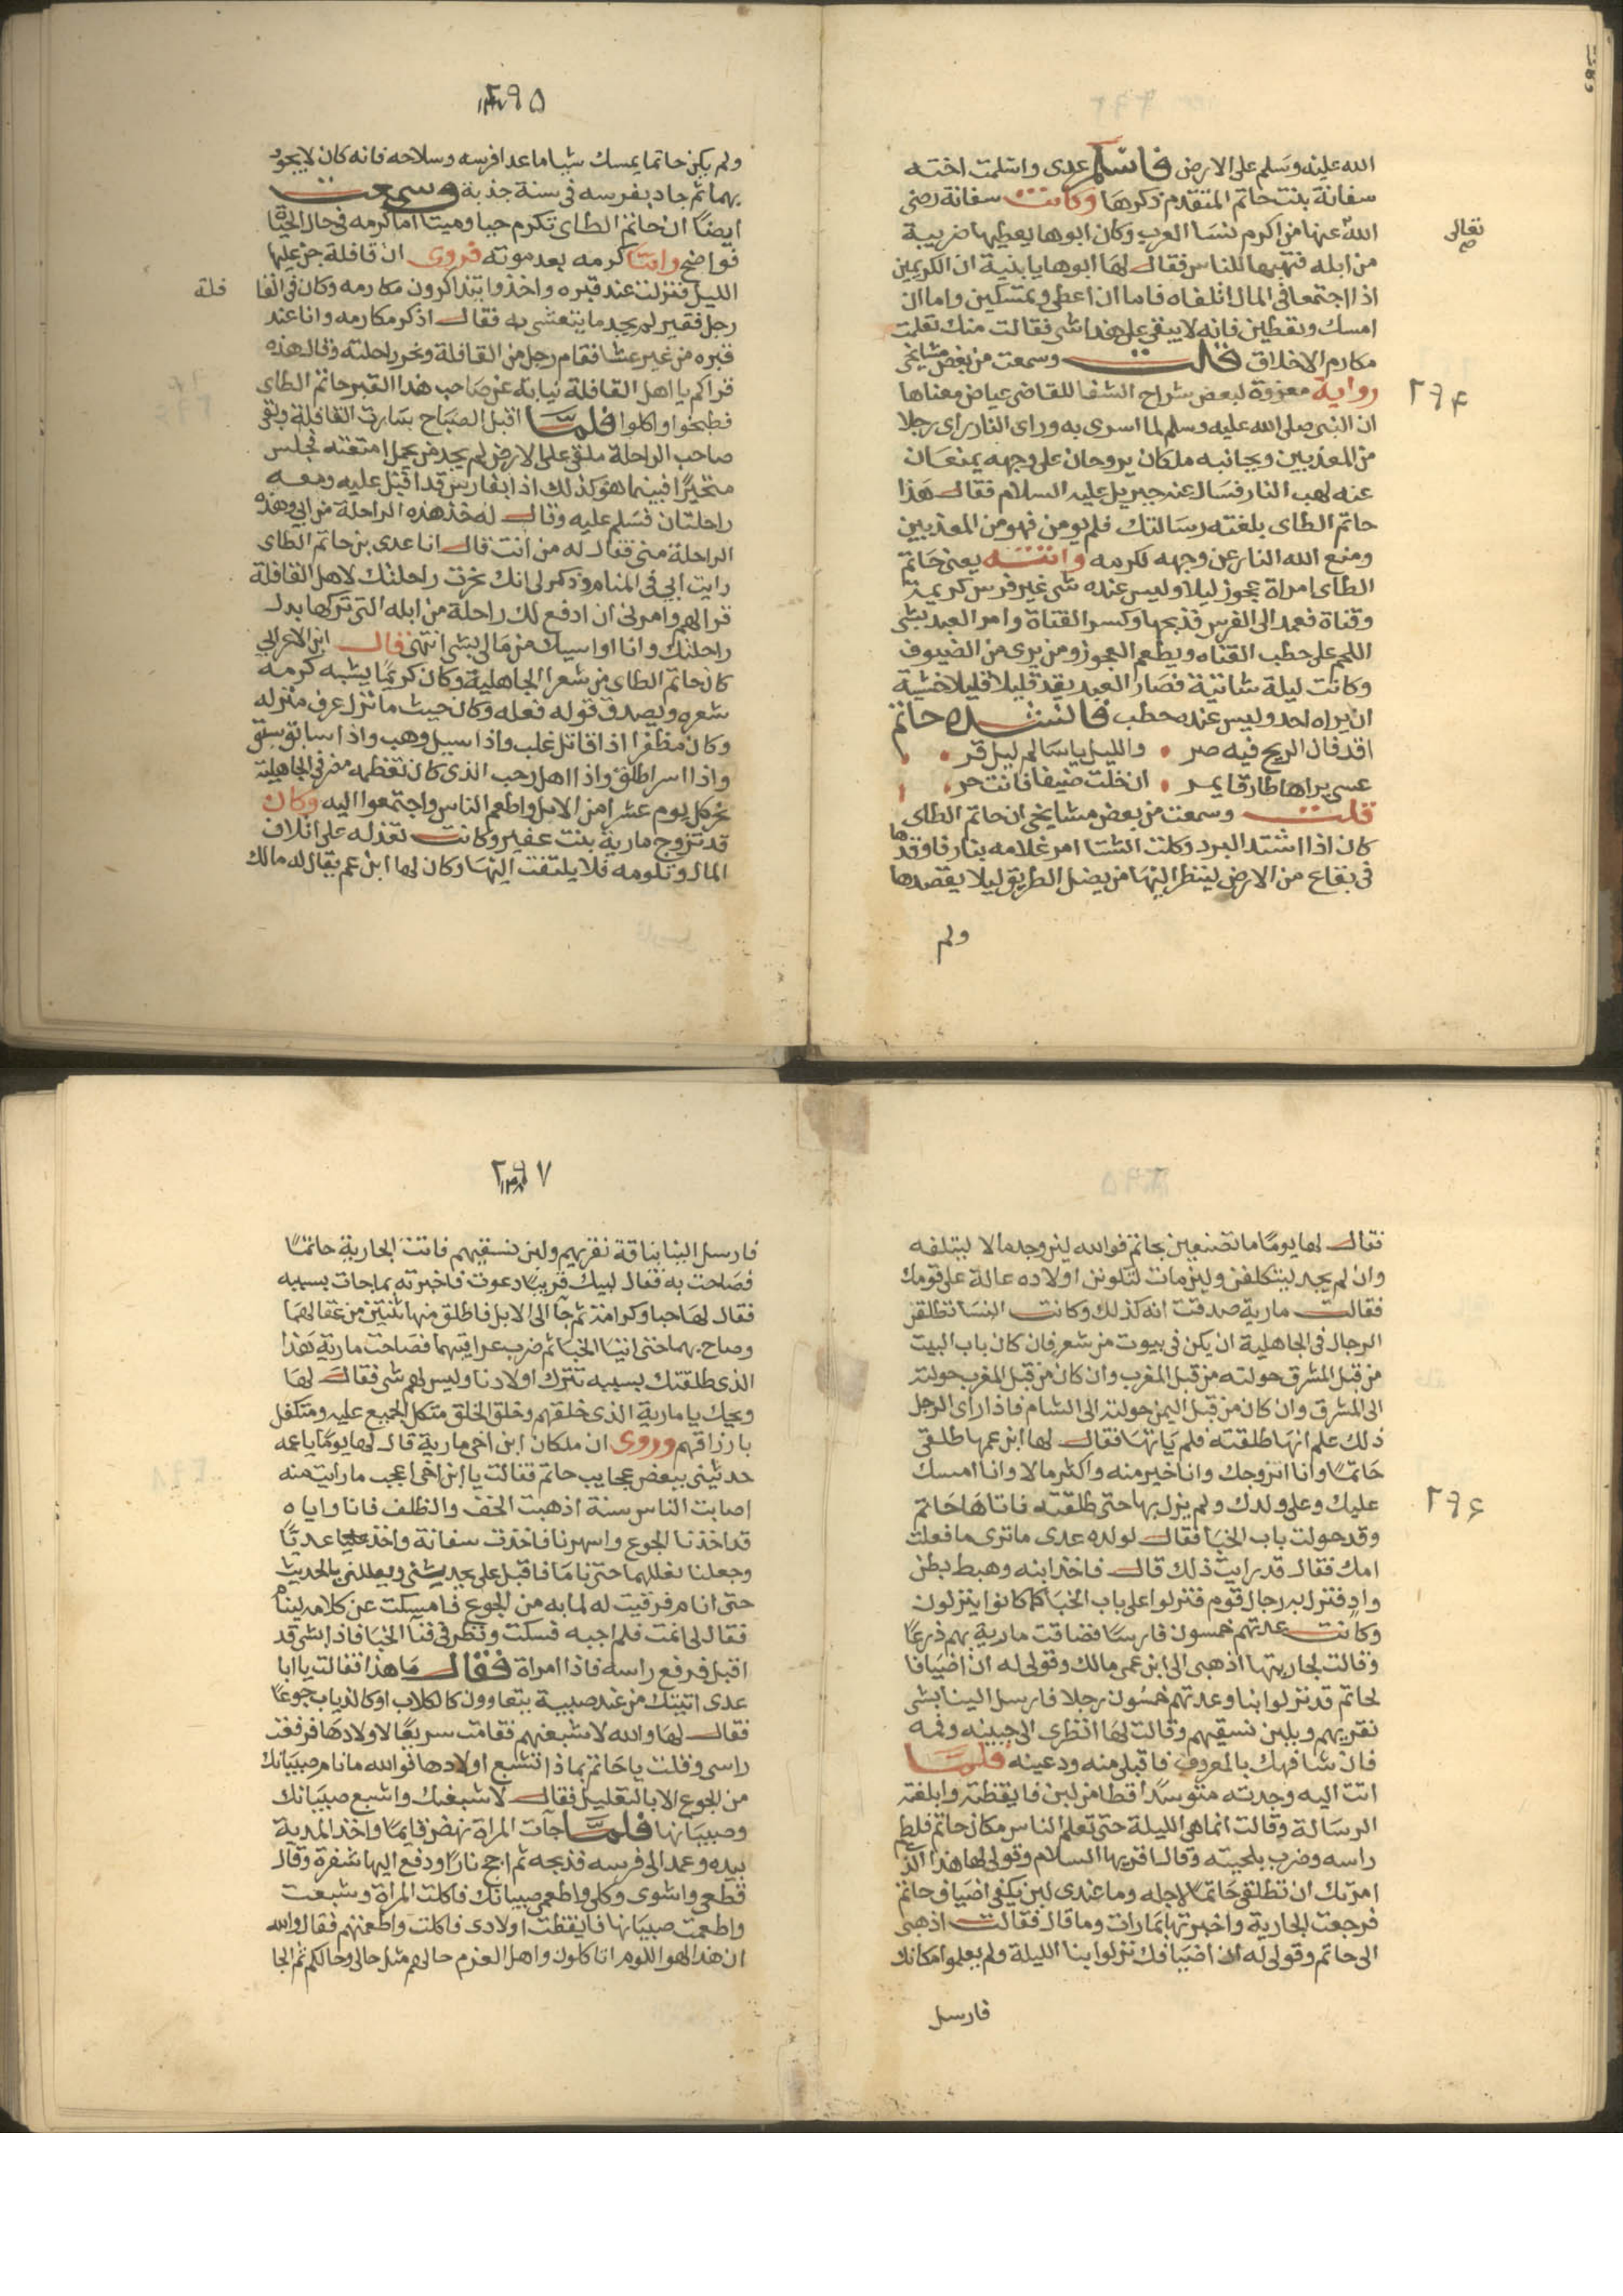 الله عليه وسلم على الارض فاسلم عدى واسلمت اخته
سفانة بنت حاتم المتقدم ذكرها وكانت سفانة رضى
الله عنها من اكرم نسا العرب وكان ابوها يعطيها ضريبة
تعالى
من ابله فتهبها للناس فقال لها ابوها يا بنية ان الكريمين
اذا اجتمعا فى المال اتلفاه فاما ان اعطى وتمسكين واما ان
امسك وتعطين فانه لا يبقى على هذا شى فقالت منك تعلمت
مكارم الاخلاق قلت وسمعت من بعض مشايخى
رواية معزوة لبعض شراح الشفا للقاضى عياض معناها
٢٩٤
ان النبى صلى الله عليه وسلم لما اسرى به وراى النار راى رجلا
من المعذبين وبجانبه ملكان يروحان على وجهه يمنعان
عنه لهب النار فسال عنه جبريل عليه السلام فقال هذا
حاتم الطاى بلغته رسالتك فلم يومن فهو من المعذبين
ومنع الله النار عن وجهه لكرمه واتته يعنى حاتم
الطاى امراة عجوز ليلا وليس عنده شى غير فرس كريمة
وقناة فعمد الى الفرس فذبحها وكسر القناة وامر العبد يشى
اللحم على حطب القناه ويطعم العجوز ومن يرى من الضيوف
وكانت ليلة شاتية فصار العبد يقد قليلا قليلا خشية
ان يراه احد وليس عنده حطب فانشده حاتم
اقد فان الريح فيه صر • والليل يا سالم ليل قر •
عسى يراها طارقا يمر • ان خلت ضيفا فانت حر •
قلت وسمعت من بعض مشايخى ان حاتم الطاى
كان اذا اشتد البرد وكلت الشتا امر غلامه بنار فاوقدها
فى بقاع من الارض لينظر اليها من يضل الطريق ليلا يقصدها
ولم
٢٩٥
ولم يكن حاتما يمسك شيا ما عدا فرسه وسلاحه فانه كان لا يجود
بهما ثم جاد بفرسه فى سنة جذبة وسمعت
ايضا ان حاتم الطاى تكرم حيا وميتا اما كرمه فى حال الحياة
فواضح واما كرمه بعد موته فروى ان قافلة جن عليها
الليل فنزلت عند قبره واخذوا يتذاكرون مكارمه وكان فى القا
فلة
رجل فقير لم يجد ما يتعشى به فقال اذكر مكارمه وانا عند
قبره من غير عشا فقام رجل من القافلة ونحر راحلته وقال هذه
قراكم يا اهل القافلة نيابة عن صاحب هذا القبر حاتم الطاى
فطبخوا واكلوا فلما اقبل الصباح سارت القافلة وبقى
صاحب الراحلة ملقى على الارض لم يجد من يحمل امتعته فجلس
متحيرا فبينما هو كذلك اذا بفارس قد اقبل عليه ومعه
راحلتان فسلم عليه وقال له خذ هذه الراحلة من ابى وهذه
الراحلة منى فقال له من انت قال انا عدى بن حاتم الطاى
رايت ابى فى المنام وذكر لى انك نحرت راحلتك لاهل القافلة
قرا لهم وامرنى ان ادفع لك راحلة من ابله التى تركها بدل
راحلتك وانا اواسيك من مالى بشى انتهى قال ابن الاعرابى
كان حاتم الطاى من شعرا الجاهلية وكان كريما يشبه كرمه
شعره ويصدق قوله فعله وكان حيث ما نزل عرف منزله
وكان مظفرا اذا قاتل غلب واذا سيل وهب واذا سابق سبق
واذا اسر اطلق واذا اهل رجب الذى كان تعظمه مضر فى الجاهلية
نحر كل يوم عشرا من الابل واطعم الناس واجتمعوا اليه وكان
قد تزوج مارية بنت عفير وكانت تعذله على اتلاف
المال وتلومه فلا يلتفت اليها وكان لها ابن عم يقال له مالك
فقال لها يوما ما تصنعين بحاتم فوالله لين وجد مالا ليتلفه
وان لم يجد ليتكلفن ولين مات لتكونن اولاده عالة على قومك
فقالت مارية صدقت انه كذلك وكانت النسا تطلقن
الرجال فى الجاهلية ان يكن فى بيوت من شعر فان كان باب البيت
من قبل المشرق حولته من قبل المغرب وان كان من قبل المغرب حولته
الى المشرق وان كان من قبل اليمن حولته الى الشام فاذا راى الرجل
ذلك علم انها طلقته فلم ياتها فقال لها ابن عمها طلقى
حاتما وانا اتزوجك وانا خير منه واكثر مالا وانا امسك
عليك وعلى ولدك ولم يزل بها حتى طلقته فاتاها حاتم
٢٩٦
وقد حولت باب الخبا فقال لولده عدى ما ترى ما فعلت
امك فقال قد رايت ذلك قال فاخذ ابنه وهبط بطن
واد فنزل به رجال قوم فنزلوا على باب الخبا كما كانوا ينزلون
وكانت عدتهم خمسون فارسا فضاقت مارية بهم ذرعا
وقالت لجاريتها اذهبى الى ابن عمى مالك وقولى له ان اضيافا
لحاتم قد نزلوا بنا وعدتهم خمسون رجلا فارسل الينا بشى
نقريهم وبلبن نسقيهم وقالت لها انظرى الى جبينه وفمه
فان شافهك بالمعروف فاقبلى منه ودعينه فلما
اتت اليه وجدته متوسدا قطا من لبن فايقظته وابلغته
الرسالة وقالت انما هى الليلة حتى تعلم الناس مكان حاتم فلطم
راسه وضرب بلحيته وقال اقريها السلام وقولى لها هذا الذى
امرتك ان تطلقى حاتما لاجله وما عندى لبن يكفى اضياف حاتم
فرجعت الجارية واخبرتها بما رات وما قال فقالت اذهبى
الى حاتم وقولى له ان اضيافك نزلوا بنا الليلة ولم يعلموا مكانك
فارسل
٢٩٧
فارسل الينا بناقة نقريهم ولبن نسقيهم فاتت الجارية حاتما
فصاحت به فقال لبيك قريبا دعوت فاخبرته بما جات بسببه
فقال لها حبا وكرامة ثم جا الى الابل فاطلق منها ثنتين من عقالهما
وصاح بهما حتى اتيا الخبا ثم ضرب عراقيبهما فصاحت مارية هذا
الذى طلقتك بسببه تترك اولادنا وليس لهم شى فقال لها
ويحك يا مارية الذى خلقهم وخلق الخلق متكل الجميع عليه ومتكفل
بارزاقهم وروى ان ملكان ابن اخى مارية قال لها يوما يا عمه
حدثينى ببعض عجايب حاتم فقالت يا ابن اخى اعجب ما رايت منه
اصابت الناس سنة اذهبت الخف والظلف فانا واياه
قد اخذنا الجوع واسهرنا فاخذت سفانة واخذ عديا
وجعلنا نعللهما حتى ناما فاقبل على يحدثنى ويعللنى بالحديث
حتى انام فرقيت له لما به من الجوع فامسكت عن كلامه لينام
فقال لى انمت فلم اجبه فسكت ونظر فى فنا الخبا فاذا بشى قد
اقبل فرفع راسه فاذا امراة فقال ما هذا فقالت يا ابا
عدى اتيتك من عند صبية يتعاوون كالكلاب او كالذياب جوعا
فقال لها والله لاشبعنهم فقامت سريعا لاولادها فرفعت
راسى وقلت يا حاتم بماذا تشبع اولادها فوالله ما نام صبيانك
من الجوع الا بالتعليل فقال لاشبعنك واشبع صبيانك
وصبيانها فلما جات المراة نهض قايما واخذ المدية
بيده وعمد الى فرسه فذبحه ثم اجج نارا ودفع اليها شفرة وقال
قطعى واشوى وكلى واطعمى صبيانك فاكلت المراة وشبعت
واطعمت صبيانها فايقظت اولادى فاكلت واطعمتهم فقال والله
ان هذا لهو اللوم اتاكلون واهل العزم حالهم مثل حالى وحالكم ثم اتى